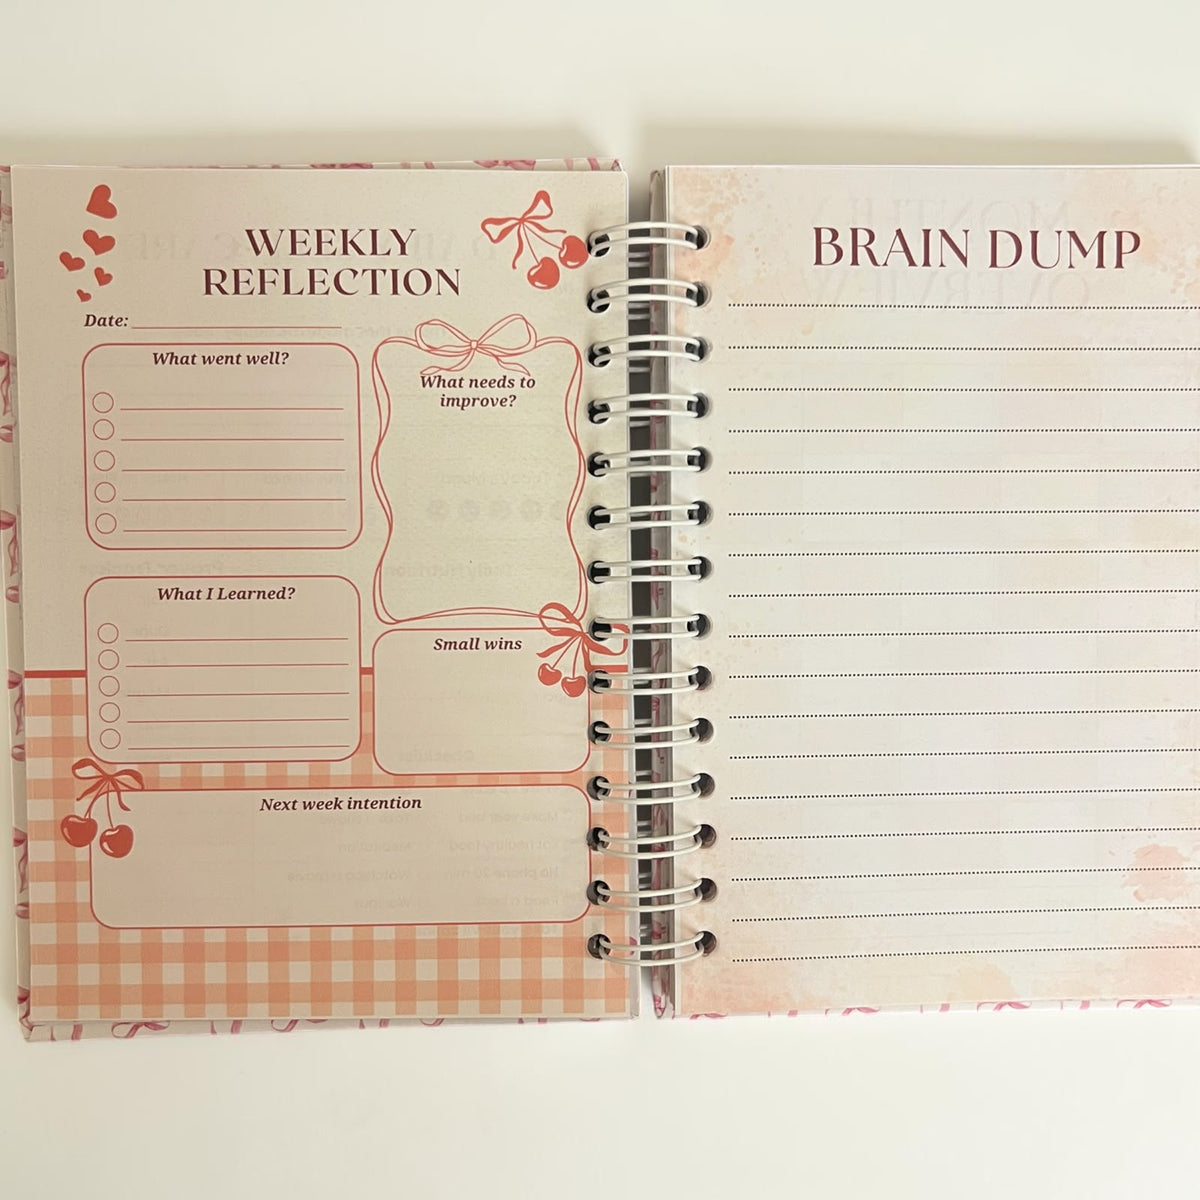 WEEKLY
REFLECTION
Date:
What went well?
What needs to
improve?
What I Learned?
Small wins
Next week intention
BRAIN DUMP